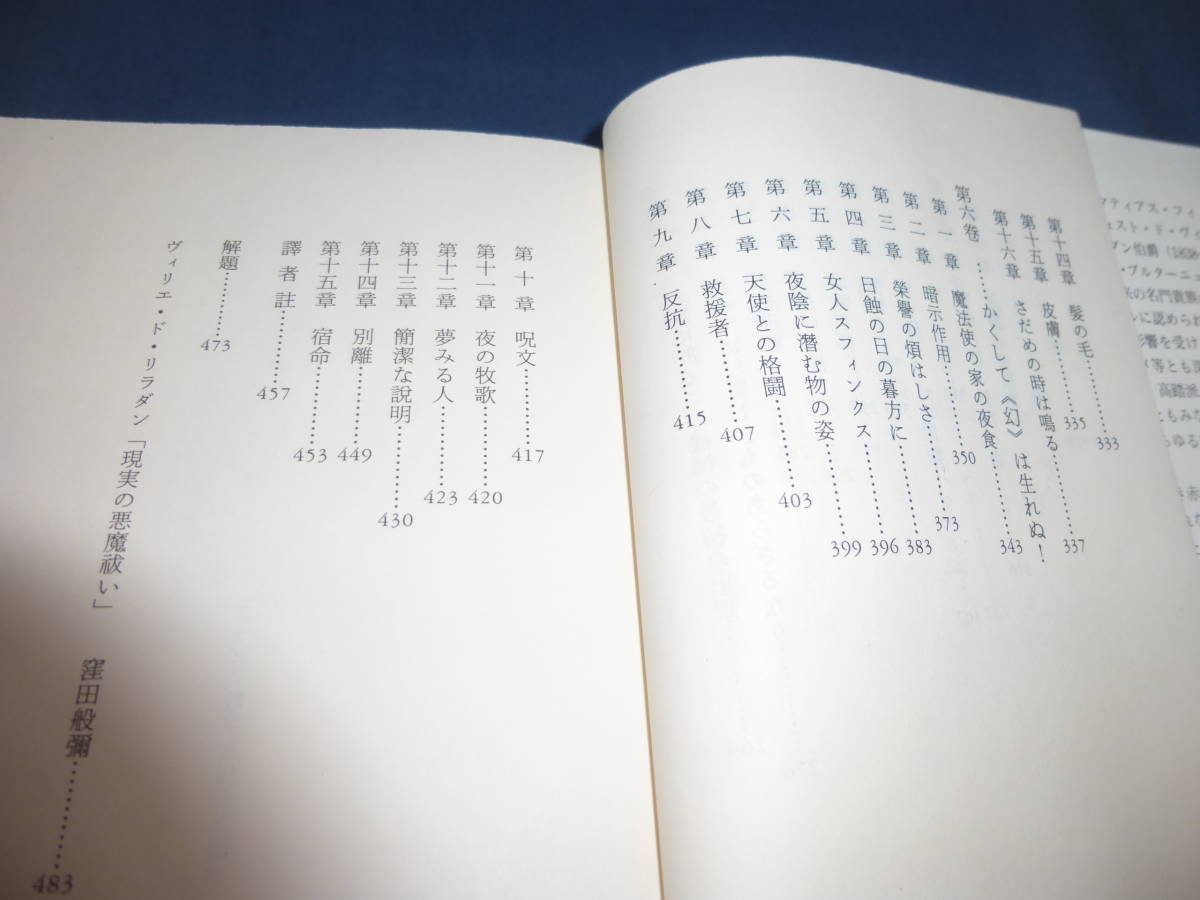 マティアス・フィ
ェスト・ド・ヴィ
ダン伯爵（1838-
・ブルターニ
来の名門貴族
ルに認められ
影響を受け
メ等とも深
高踏派
ともみな
らゆる
第十四章 髪の毛……333
第十五章 皮膚……335
第十六章 さだめの時は鳴る……337
第六巻 ……かくして《幻》は生れぬ！
第一章 魔法使の家の夜食……343
第二章 暗示作用……350
第三章 榮譽の煩はしさ……373
第四章 日蝕の日の暮方に……383
第五章 女人スフィンクス……396
第六章 夜陰に潜む物の姿……399
第七章 天使との格闘……403
第八章 救援者……407
第九章 反抗……415
第十章 呪文……417
第十一章 夜の牧歌……420
第十二章 夢みる人……423
第十三章 簡潔な説明……430
第十四章 別離……449
第十五章 宿命……453
譯者註……457
解題……473
ヴィリエ・ド・リラダン「現実の悪魔祓い」 窪田般彌……483